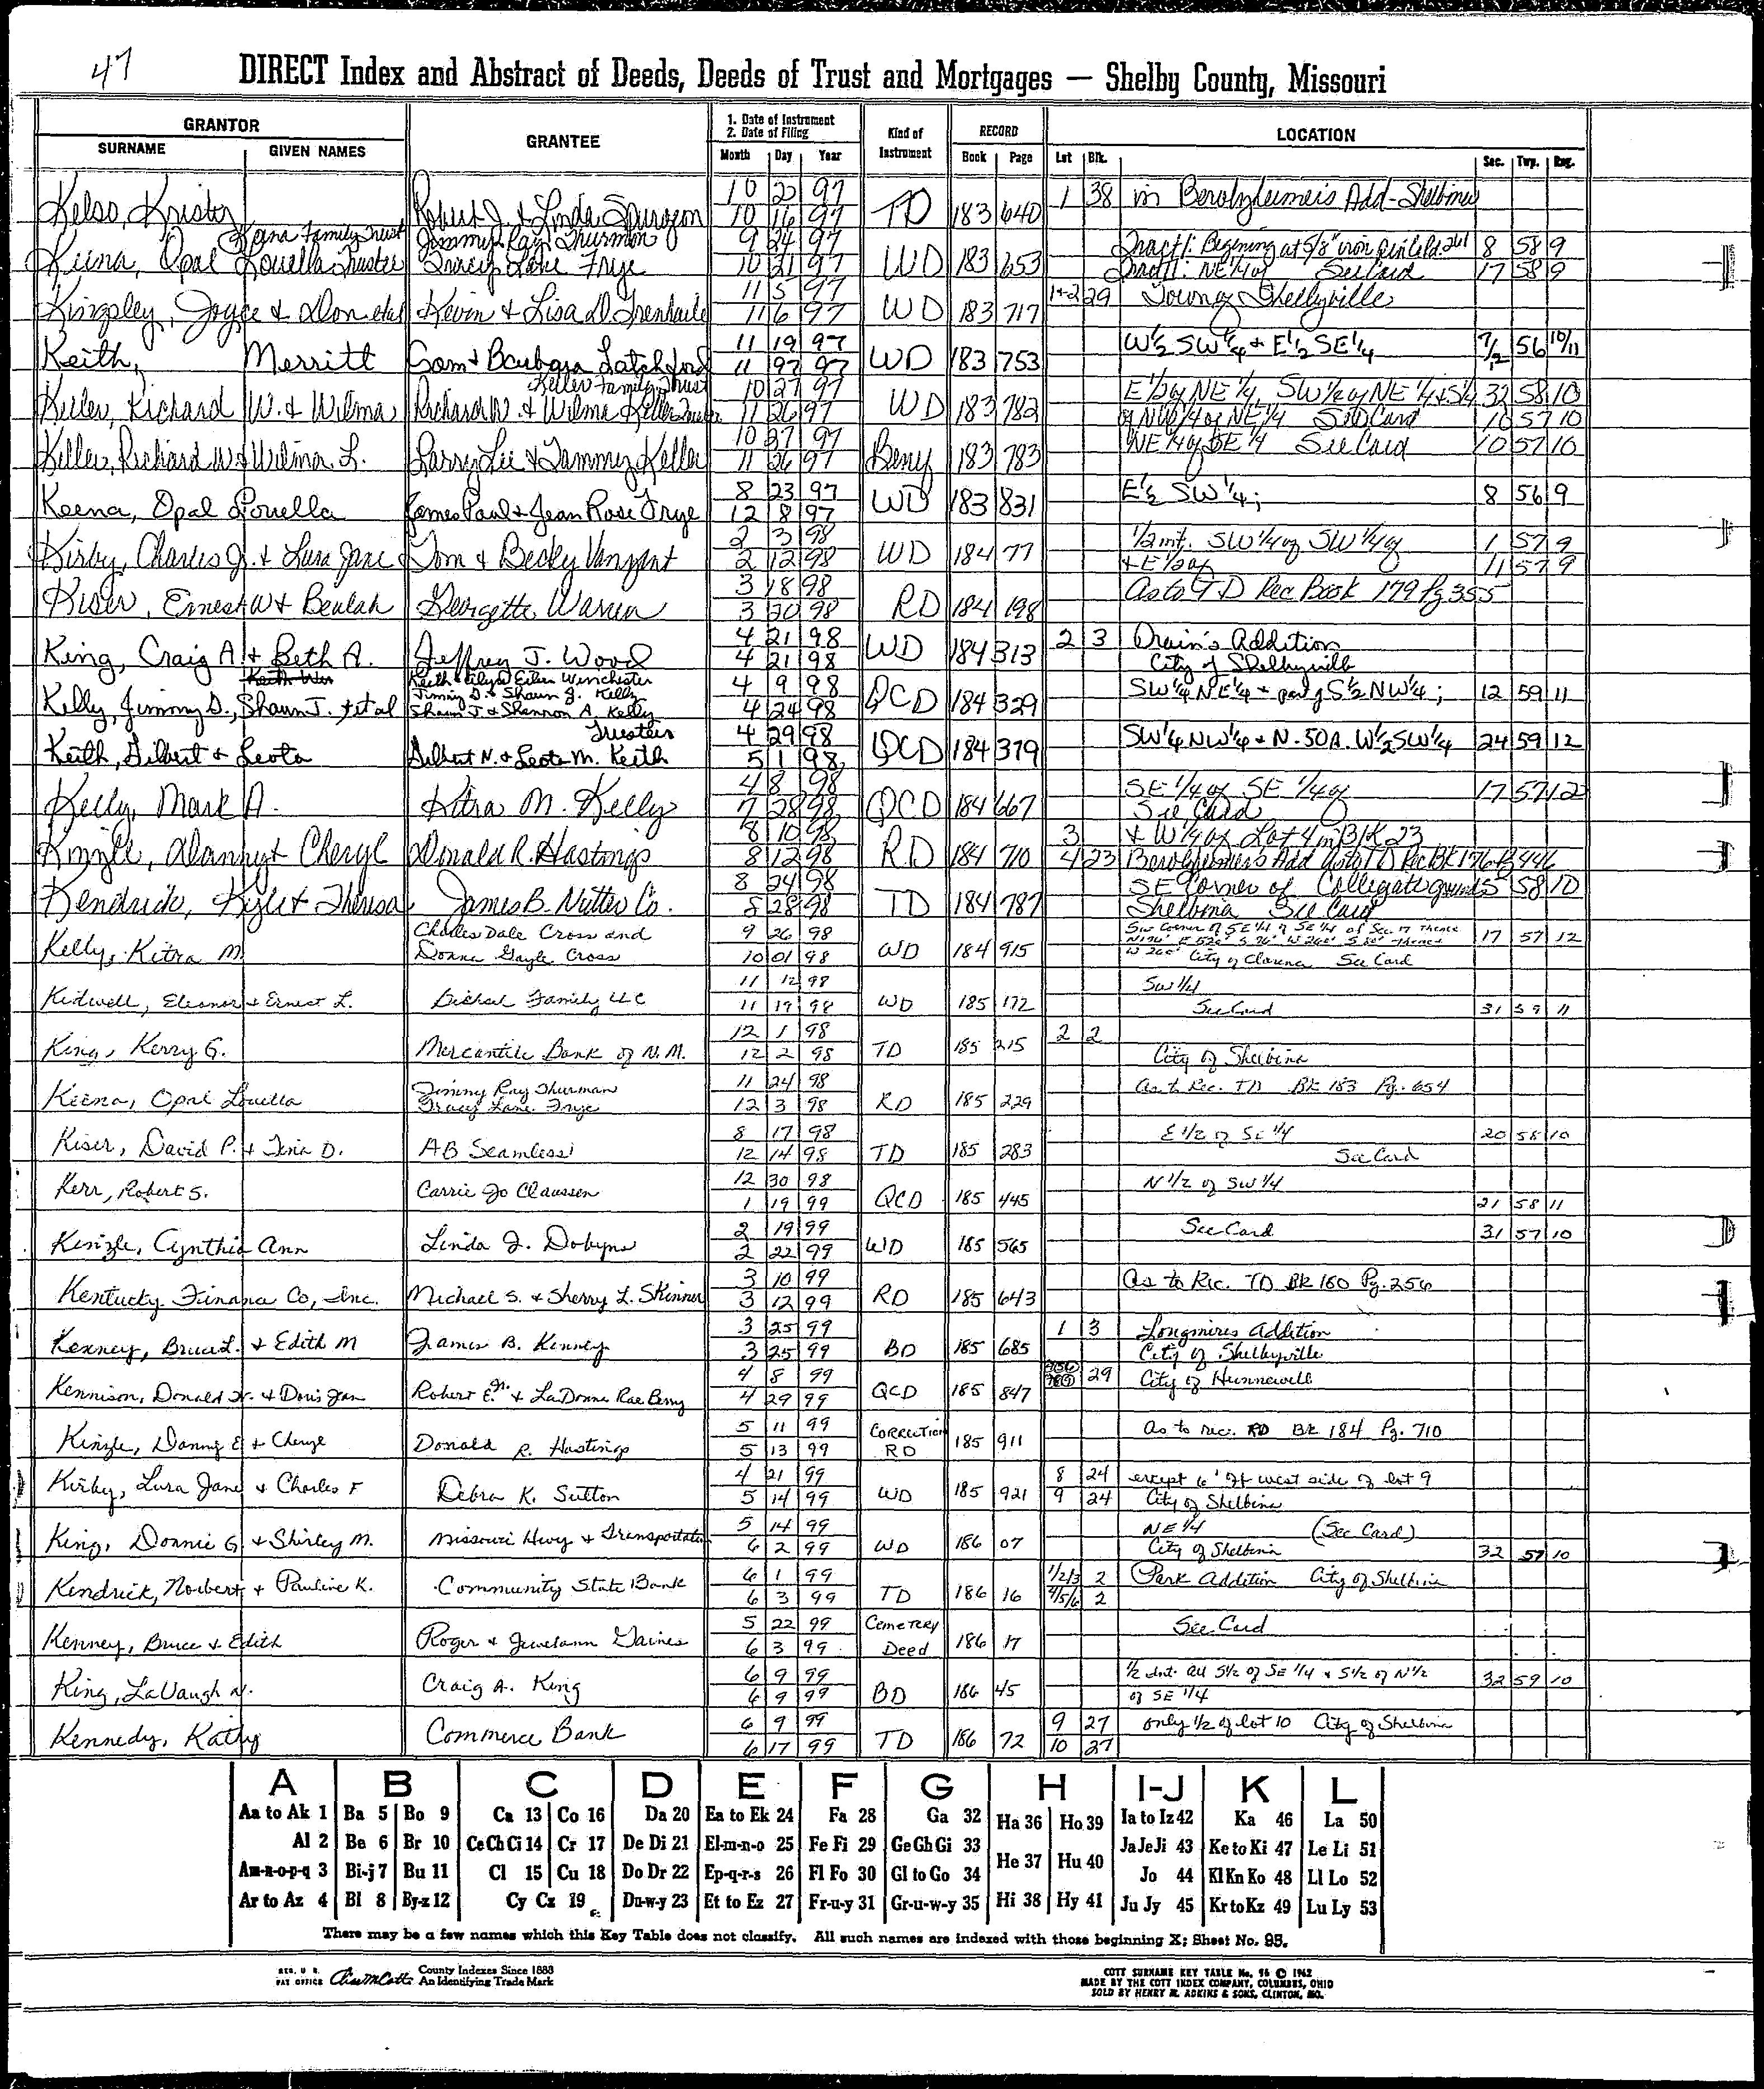 47
DIRECT Index and Abstract of Deeds, Deeds of Trust and Mortgages — Shelby County, Missouri
GRANTOR GRANTEE 1. Date of Instrument 2. Date of Filing Kind of Instrument RECORD LOCATION
SURNAME GIVEN NAMES Month Day Year Book Page Lot Blk. Sec. Twp. Rng.
Kelso, Kristy Robert J. & Linda Spurgeon 10 16 97 TD 183 640 1 38 in Berolzheimer's Add - Shelbina
Keena Family Trust Jimmy Ray Thurman 9 24 97 8 58 9
Opal Louella Trustee Tracey Lane Frye 10 21 97 WD 183 653 NE 1/4 of See Card 17 58 9
11 5 97
Kingsley, Joyce & Don etal Kevin & Lisa D. 11 6 97 WD 183 717 1+2 29 Town of Shelbyville
11 19 97
Keith, Merritt Sam & Barbara Latchford 11 97 WD 183 753 W½ SW¼ & E½ SE¼ 56 10/11
Keller Family Trust 10 27 97 E 1/2 of NE 1/4, SW 1/4 of NE 1/4 & S 1/4 32 58 10
Keller, Richard W. & Wilma Richard W. & Wilma Keller 11 26 97 WD 183 782 of NW 1/4 of NE 1/4 See Card 10 57 10
10 27 97
Keller, Richard W & Wilma L. Larry Lee & Tammy Keller 11 26 97 Beny 183 783 NE 1/4 of SE 1/4 See Card 10 57 10
8 23 97
Keena, Opal Louella James Paul & Jean Rose Frye 12 8 97 WD 183 831 E½ SW¼; 8 56 9
2 3 98 1/2 int. SW 1/4 of SW 1/4 of 1 57 9
Kirby, Charles & Lura Jane Tom & Becky Vanzant 2 12 98 WD 184 77 + E 1/2 of 11 57 9
3 18 98
Kiser, Ernest W & Beulah Georgette Warren 3 20 98 RD 184 198 As to TD Rec Book 179 Pg 355
4 21 98
King, Craig A. & Beth A. Jeffrey J. Wood 4 21 98 WD 184 313 2 3 Drain's Addition
City of Shelbyville
Keith & Eilyn Winchester 4 9 98
Jimmy D. & Shaun J. Kelly
Kelly, Jimmy D., Shaun J. etal Shaun J & Shannon A. Kelly 4 24 98 QCD 184 329 SW¼ NE¼ + part of S½ NW¼; 12 59 11
Trustees 4 29 98
Keith, Gilbert & Leota Gilbert N. & Leota M. Keith 5 1 98 QCD 184 379 SW¼ NW¼ + N. 50A. W½ SW¼ 24 59 12
4 8 98 SE 1/4 of SE 1/4 of 17 57 12
Kelly, Mark A. Kitra M. Kelly 7 28 98 QCD 184 667 See Card
8 10 98 3 & W 1/4 of Lot 4 in Blk 23
Kinzle, Danny & Cheryl Donald R. Hastings 8 12 98 RD 184 710 4 23 Berolzheimer's Add as to TD Rec Bk 176 Pg 446
8 24 98 SE Corner of Collegate grounds 58 10
Kendrick, Kyle & Theresa James B. Nutter Co. 8 28 98 TD 184 787 Shelbina See Card
Charles Dale Cross and 9 26 98 SW Corner of SE 1/4 of SE 1/4 of Sec 17 Thence 17 57 12
Kelly, Kitra M Donna Gayle Cross 10 01 98 WD 184 915 W 260' City of Clarence See Card
11 12 98 SW 1/4
Kidwell, Eleanor & Ernest L. Family LLC 11 19 98 WD 185 172 See Card 31 59 11
12 1 98
King, Kerry G. Mercantile Bank of N.M. 12 2 98 TD 185 215 2 2 City of Shelbina
Jimmy Ray Thurman 11 24 98 As to Rec. TD Bk 183 Pg. 654
Keena, Opal Louella Tracey Lane Frye 12 3 98 RD 185 229
8 17 98 E 1/2 of SE 1/4 20 58 10
Kiser, David P. & Tina D. AB Seamless 12 14 98 TD 185 283 See Card
12 30 98 N 1/2 of SW 1/4
Kerr, Robert S. Carrie Jo Claussen 1 19 99 QCD 185 445 21 58 11
2 19 99 See Card 31 57 10
Kinzle, Cynthia Ann Linda J. Dobyns 2 22 99 WD 185 565
3 10 99 As to Rec. TD Bk 180 Pg. 256
Kentucky Finance Co, Inc. Michael S. & Sherry L. Skinner 3 12 99 RD 185 643
3 25 99 1 3 Longmires Addition
Kenney, Bruce L. & Edith M James B. Kenney 3 25 99 BD 185 685 City of Shelbyville
4 8 99 29 City of Hunnewell
Kennison, Donald & Doris Jan Robert E. Jr. & LaDonna Rae Berry 4 29 99 QCD 185 847
5 11 99 Correction As to rec. RD Bk 184 Pg. 710
Kinzle, Danny E & Cheryl Donald R. Hastings 5 13 99 RD 185 911
4 21 99 8 24 except 6' off west side of lot 9
Kirby, Lura Jane & Charles F Debra K. Sutton 5 14 99 WD 185 921 9 24 City of Shelbina
5 14 99 NE 1/4 (See Card)
King, Donnie G & Shirley M. Missouri Hwy & Transportation 6 2 99 WD 186 07 City of Shelbina 32 57 10
6 1 99 1/2/3 2 Park Addition City of Shelbina
Kendrick, Norbert & Pauline K. Community State Bank 6 3 99 TD 186 16 4/5/6 2
5 22 99 Cemetery See Card
Kenney, Bruce & Edith Roger & Jewelann Gaines 6 3 99 Deed 186 17
6 9 99 ½ int. all S½ of SE 1/4 & S½ of N½ 32 59 10
King, LaVaugh N. Craig A. King 6 9 99 BD 186 45 of SE 1/4
6 9 99 9 27 only ½ of lot 10 City of Shelbina
Kennedy, Kathy Commerce Bank 6 17 99 TD 186 72 10 27
A B C D E F G H I-J K L
Aa to Ak 1 Ba 5 Bo 9 Ca 13 Co 16 Da 20 Ea to Ek 24 Fa 28 Ga 32 Ha 36 Ho 39 Ia to Iz 42 Ka 46 La 50
Al 2 Be 6 Br 10 Ce Ch Ci 14 Cr 17 De Di 21 El-m-n-o 25 Fe Fi 29 Ge Gh Gi 33 He 37 Hu 40 Ja Je Ji 43 Ke to Ki 47 Le Li 51
Am-n-o-p-q 3 Bi-j 7 Bu 11 Cl 15 Cu 18 Do Dr 22 Ep-q-r-s 26 Fl Fo 30 Gl to Go 34 Jo 44 Kl Kn Ko 48 Ll Lo 52
Ar to Az 4 Bl 8 By-z 12 Cy Cz 19 Du-w-y 23 Et to Ez 27 Fr-u-y 31 Gr-u-w-y 35 Hi 38 Hy 41 Ju Jy 45 Kr to Kz 49 Lu Ly 53
There may be a few names which this Key Table does not classify. All such names are indexed with those beginning X; Sheet No. 95.
REG. U. S. PAT OFFICE County Indexes Since 1888
An Identifying Trade Mark
COTT SURNAME KEY TABLE No. 96 © 1962
MADE BY THE COTT INDEX COMPANY, COLUMBUS, OHIO
SOLD BY HENRY M. ADKINS & SONS, CLINTON, MO.